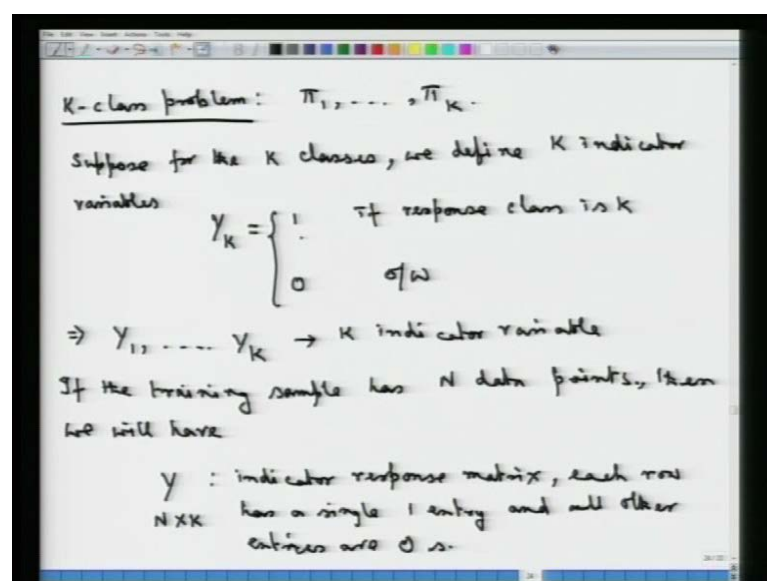 K-class problem: Π₁, ...., Π_K.
Suppose for the K classes, we define K indicator
variables
Y_K = { 1 if response class is K
0 o/w
⇒ Y₁, .... Y_K → K indicator variable
If the training sample has N data points., then
we will have
Y : indicator response matrix, each row
N×K has a single 1 entry and all other
entries are 0 s.